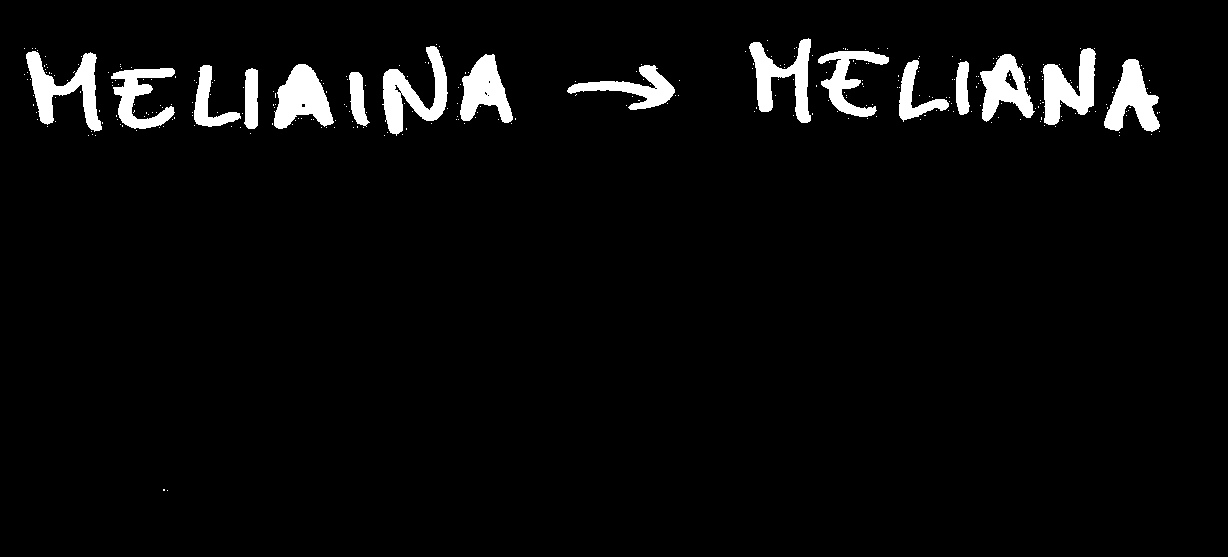 MELIAINA → MELIANA